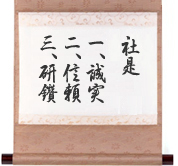 社是
一、誠実
二、信頼
三、研鑽